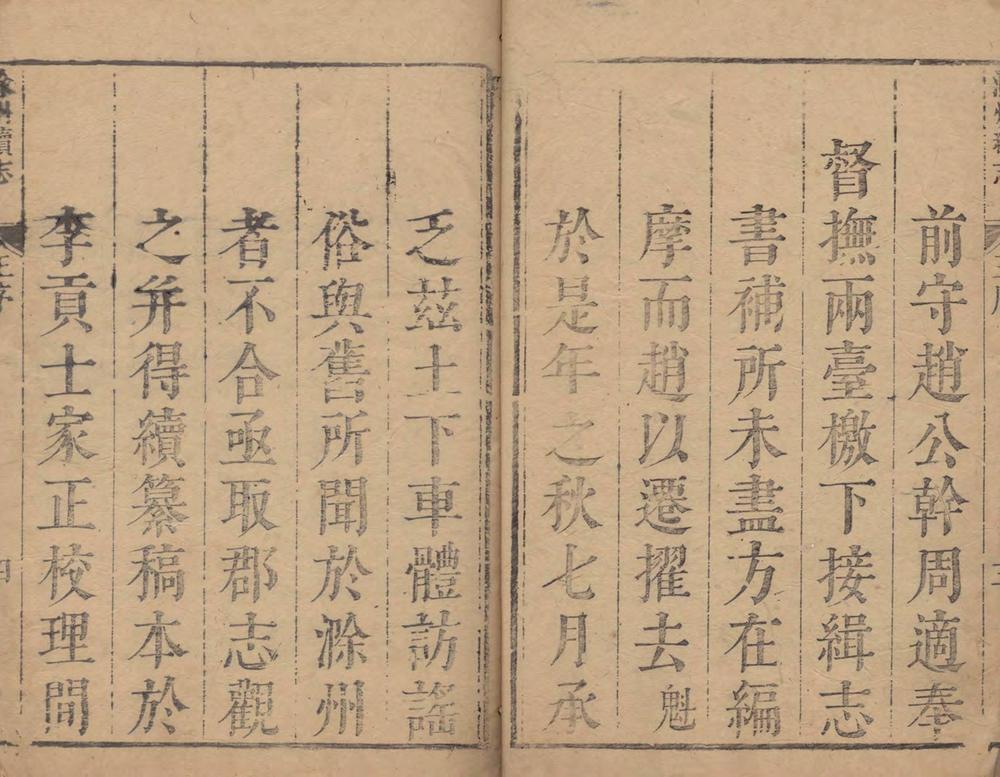 前守趙公幹周適奉
督撫兩臺檄下接緝志
書補所未盡方在編
摩而趙以遷擢去魁
於是年之秋七月承
乏茲土下車體訪謠
俗與舊所聞於滁州
者不合亟取郡志觀
之并得續纂稿本於
李貢士家正校理間
續志